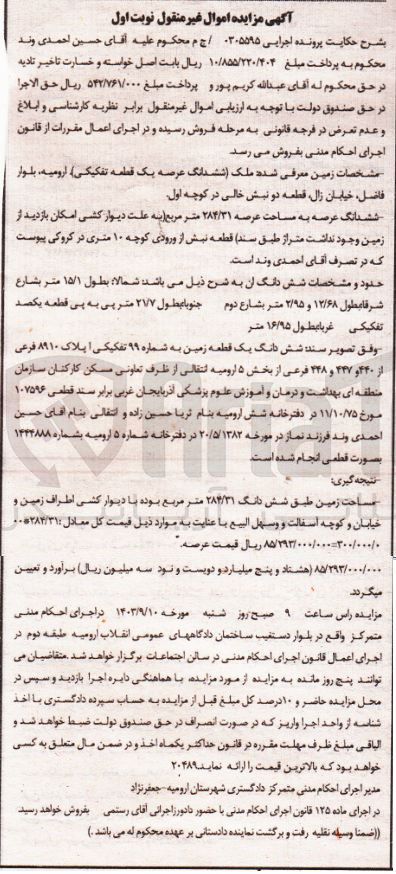 آگهی مزایده اموال غیر منقول نوبت اول
بشرح حکایت پرونده اجرایی ۰۳۰۵۵۹۵ / ج م محکوم علیه آقای حسین احمدی وند
محکوم به پرداخت مبلغ ۱۰/۸۵۵/۲۲۰/۴۰۴ ریال بابت اصل خواسته و خسارت تاخیر تادیه
در حق محکوم له آقای عبدالله کریم پور و پرداخت مبلغ ۵۴۲/۷۶۱/۰۰۰ ریال حق الاجرا
در حق صندوق دولت با توجه به ارزیابی اموال غیرمنقول برابر نظریه کارشناسی و ابلاغ
و عدم تعرض در فرجه قانونی به مرحله فروش رسیده و در اجرای اعمال مقررات از قانون
اجرای احکام مدنی بفروش می رسد.
–مشخصات زمین معرفی شده: ملک (ششدانگ عرصه یک قطعه تفکیکی)، ارومیه، بلوار
فاضل، خیابان زال، قطعه دو نبش خالی در کوچه اول.
–ششدانگ عرصه به مساحت عرصه ۲۸۴/۳۱ متر مربع(به علت دیوار کشی امکان بازدید از
زمین وجود نداشت متراژ طبق سند) قطعه نبش از ورودی کوچه ۱۰ متری در کروکی پیوست
که در تصرف آقای احمدی وند است.
حدود و مشخصات شش دانگ آن به شرح ذیل می باشد: شمالا: بطول ۱۵/۱ متر بشارع
شرقا:بطول ۱۲/۶۸ و ۲/۹۵ متر بشارع دوم جنوبا:بطول ۲۱/۷ متر پی به پی قطعه یکصد
تفکیکی غربا:بطول ۱۶/۹۵ متر
–وفق تصویر سند: شش دانگ یک قطعه زمین به شماره ۹۹ تفکیکی / پلاک ۸۹۱۰ فرعی
از ۴۴۰و ۴۴۷ و ۴۴۸ فرعی از بخش ۵ ارومیه انتقالی از طرف تعاونی مسکن کارکنان سازمان
منطقه ای بهداشت و درمان و آموزش علوم پزشکی آذربایجان غربی برابر سند قطعی ۱۰۷۵۹۶
مورخ ۱۱/۱۰/۷۵ در دفترخانه شش ارومیه بنام ثریا حسین زاده و انتقالی بنام آقای حسین
احمدی وند فرزند نماز در مورخه ۲۰/۵/۱۳۸۲ در دفترخانه شماره ۵ ارومیه بشماره ۱۴۴۴۸۸۸
بصورت قطعی انجام شده است.
نتیجه گیری:
مساحت زمین طبق شش دانگ ۲۸۴/۳۱ متر مربع بوده با دیوار کشی اطراف زمین و
خیابان و کوچه آسفالت و وسهل البیع با عنایت به موارد ذیل قیمت کل معادل :۲۸۴/۳۱*۰۰
۳۰۰/۰۰۰/۰=۸۵/۲۹۳/۰۰۰/۰۰۰ ریال قیمت عرصه.
۸۵/۲۹۳/۰۰۰/۰۰۰ (هشتاد و پنج میلیارد و دویست و نود سه میلیون ریال) برآورد و تعیین
میگردد.
مزایده راس ساعت ۹ صبح روز شنبه مورخه ۱۴۰۳/۹/۱۰ دراجرای احکام مدنی
متمرکز واقع در بلوار دستغیب ساختمان دادگاههای عمومی انقلاب ارومیه طبقه دوم در
اجرای اعمال قانون اجرای احکام مدنی در سالن اجتماعات برگزار خواهد شد .متقاضیان می
توانند پنج روز مانده به مزایده از مورد مزایده، با هماهنگی دایره اجرا بازدید و سپس در
محل مزایده حاضر و ۱۰درصد کل مبلغ قبل از مزایده به حساب سپرده دادگستری با اخذ
شناسه از واحد اجرا واریز که در صورت انصراف در حق صندوق دولت ضبط خواهد شد و
الباقی مبلغ ظرف مهلت مقرره در قانون حداکثر یکماه اخذ و در ضمن مال متعلق به کسی
خواهد بود که بالاترین قیمت را ارائه نماید.۲۰۴۸۹
مدیر اجرای احکام مدنی متمرکز دادگستری شهرستان ارومیه -جعفرنژاد
در اجرای ماده ۱۲۵ قانون اجرای احکام مدنی با حضور دادورز اجرائی آقای رستمی بفروش خواهد رسید.
((ضمنا وسیله نقلیه رفت و برگشت نماینده دادستانی بر عهده محکوم له می باشد .)